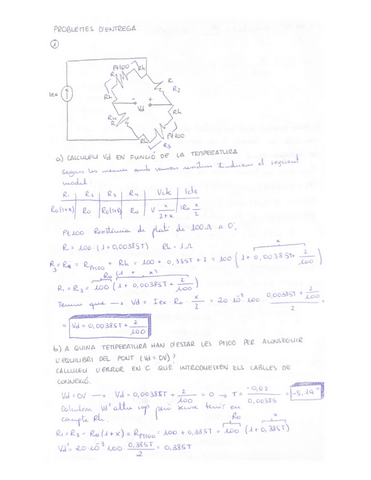 PROBLEMES D'ENTREGA
1
Pt100
R1
Rh
R
R2
Iex
- Vd +
R4
Rh
Pt100
Rh
R3
a) CALCULEU Vd EN FUNCIÓ DE LA TEMPERATURA
Segons les mesures amb sensors resistius tindrem el següent
model:
R1 R2 R3 R4 Vcte Icte
R0(1+x) R0 R0(1+x) R0 V x/2+x IR0 x/2
Pt100 Resistència de platí de 100Ω a 0°.
R = 100·(1+0,00385T) Rh = 1Ω
R3=R1 = RPt100 + Rh = 100 + 0,385T + 1 = 100 (1 + 0,00385T + 2/100)
R1 = R3 = 100 (1 + 0,00385T + 2/100)
Tenim que → Vd = Iex · R0 x/2 = 20·10⁻³ 100 0,00385T + 2/100 / 2 =
= Vd = 0,00385T + 2/100
b) A QUINA TEMPERATURA HAN D'ESTAR LES Pt100 PER ACONSEGUIR
L'EQUILIBRI DEL PONT (Vd = 0V)?
CALCULEU L'ERROR EN C QUE INTRODUEIXEN ELS CABLES DE
CONNEXIÓ.
Vd = 0V → Vd = 0,00385T + 2/100 = 0 → T = -0,02/0,00385 = -5,19°
Calculem Vd' altre cop però sense tenir en
compte Rh.
R1 = R3 = R0(1+x) = RPt100 = 100 + 0,385T = 100 (1 + 0,385T)
Vd' = 20·10⁻³·100 0,385T/2 = 0,385T